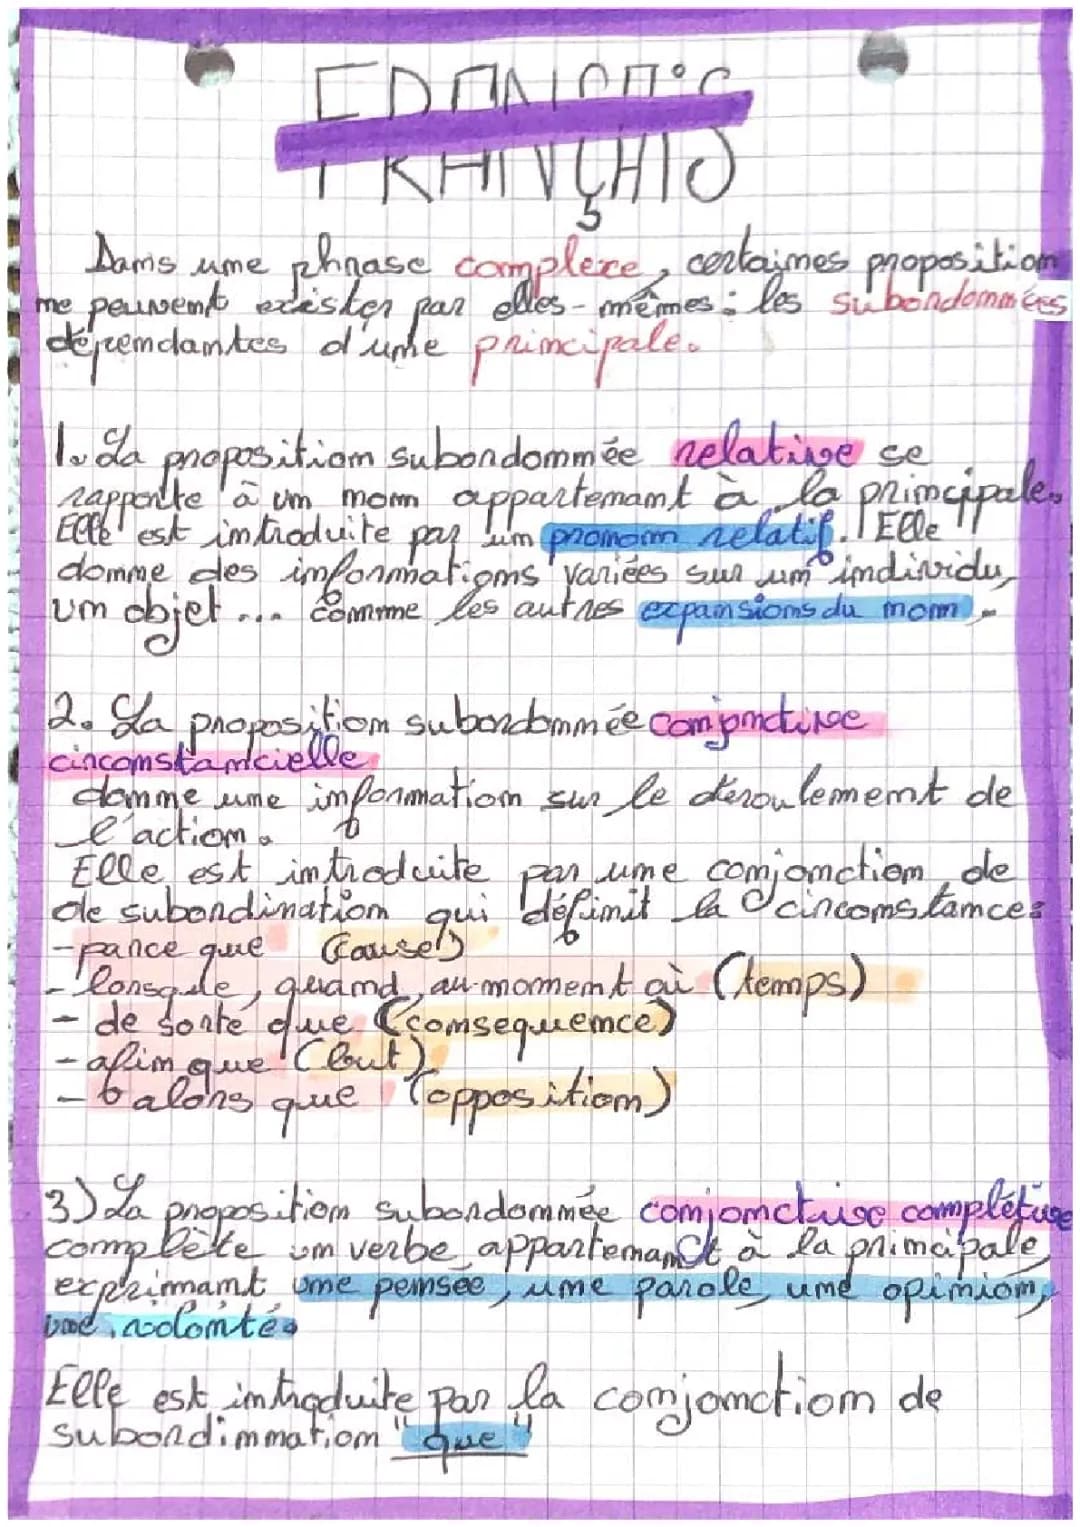 FRANÇAIS
Dans une phrase complexe, certaines proposition
ne peuvent exister par elles-mêmes : les subordonnées
dépendantes d'une principale.
1. La proposition subordonnée relative se
rapporte à un nom appartenant à la principale.
Elle est introduite par un pronom relatif. Elle
donne des informations variées sur un individu,
un objet ... comme les autres expansions du nom.
2. La proposition subordonnée conjonctive
circonstancielle
donne une information sur le déroulement de
l'action.
Elle est introduite par une conjonction de
de subordination qui définit la circonstance:
- parce que (cause)
- lorsque, quand, au moment où (temps)
- de sorte que (consequence)
- afin que (but)
- alors que (opposition)
3) La proposition subordonnée conjonctive complétive
complète un verbe appartenant à la principale,
exprimant une pensée, une parole, une opinion,
une volonté.
Elle est introduite par la conjonction de
subordinnation "que"